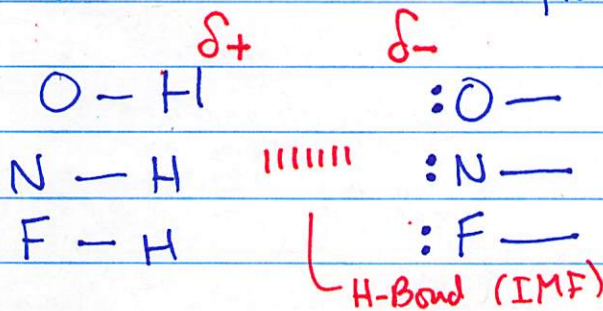 δ+ δ-
O - H :O -
N - H ||||||| :N -
F - H :F -
H-Bond (IMF)